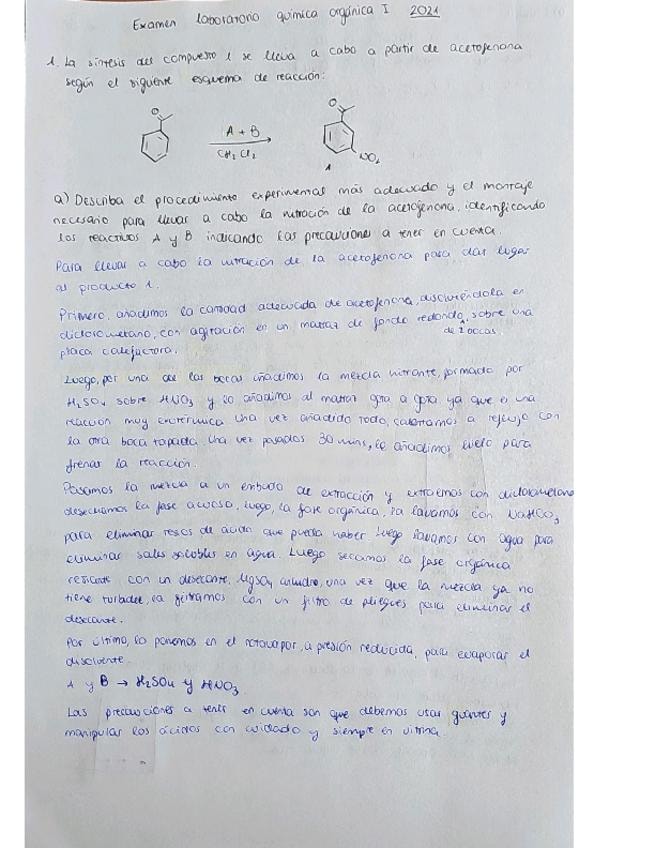 Examen laboratorio química orgánica I 2021
1. La síntesis del compuesto 1 se lleva a cabo a partir de acetofenona
según el siguiente esquema de reacción:
O O
A + B
CH2Cl2
NO2
1
a) Describa el procedimiento experimental más adecuado y el montaje
necesario para llevar a cabo la nitración de la acetofenona, identificando
los reactivos A y B indicando las precauciones a tener en cuenta.
Para llevar a cabo la nitración de la acetofenona para dar lugar
al producto 1.
Primero, añadimos la cantidad adecuada de acetofenona, disolviéndola en
diclorometano, con agitación en un matraz de fondo redondo, sobre una
de 2 bocas.
placa calefactora.
Luego, por una de las bocas añadimos la mezcla nitrante, formado por
H2SO4 sobre HNO3 y lo añadimos al matraz gota a gota ya que es una
reacción muy exotérmica. Una vez añadido todo, calentamos a reflujo con
la otra boca tapada. Una vez pasados 30 mins, le añadimos hielo para
frenar la reacción.
Pasamos la mezcla a un embudo de extracción y extraemos con diclorometano
desechamos la fase acuosa. Luego, la fase orgánica, la lavamos con NaHCO3
para eliminar restos de ácido que pueda haber. Luego lavamos con agua para
eliminar sales solubles en agua. Luego secamos la fase orgánica
con un desecante, MgSO4 anhidro, una vez que la mezcla ya no
tiene turbidez, la filtramos con un filtro de pliegues para eliminar el
desecante.
Por último, lo ponemos en el rotavapor, a presión reducida, para evaporar el
disolvente.
A y B → H2SO4 y HNO3
Las precauciones a tener en cuenta son que debemos usar guantes y
manipular los ácidos con cuidado y siempre en vitrina.